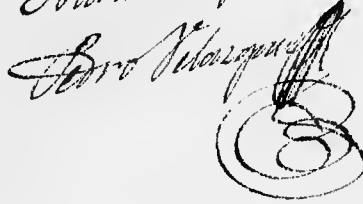 Pedro Velazquez